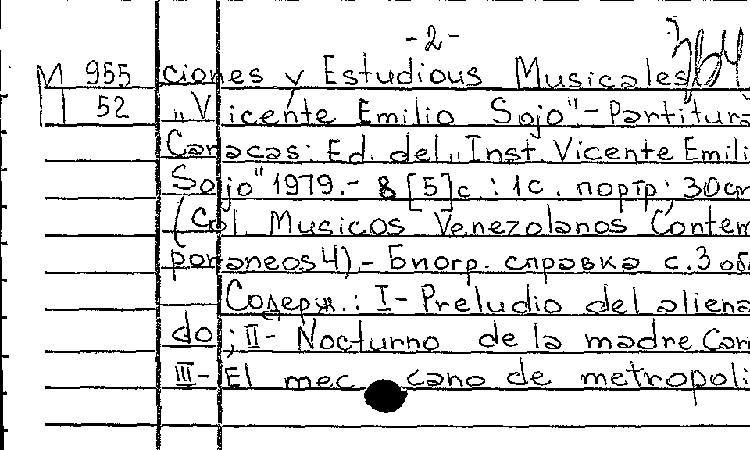 -2-
M 955 ciones y Estudious Musicales
52 „Vicente Emilio Sojo"-Partitura
Caracas: Ed. del „Inst. Vicente Emili
Sojo" 1979.- 8 [5]c : 1c. портр; 30см
(Col. Musicos Venezolanos Contem
poraneos 4).- Биогр. справка с.3 об
Содерж.: I- Preludio del aliena
do; II- Nocturno de la madre Car
III- El mec cano de metropoli